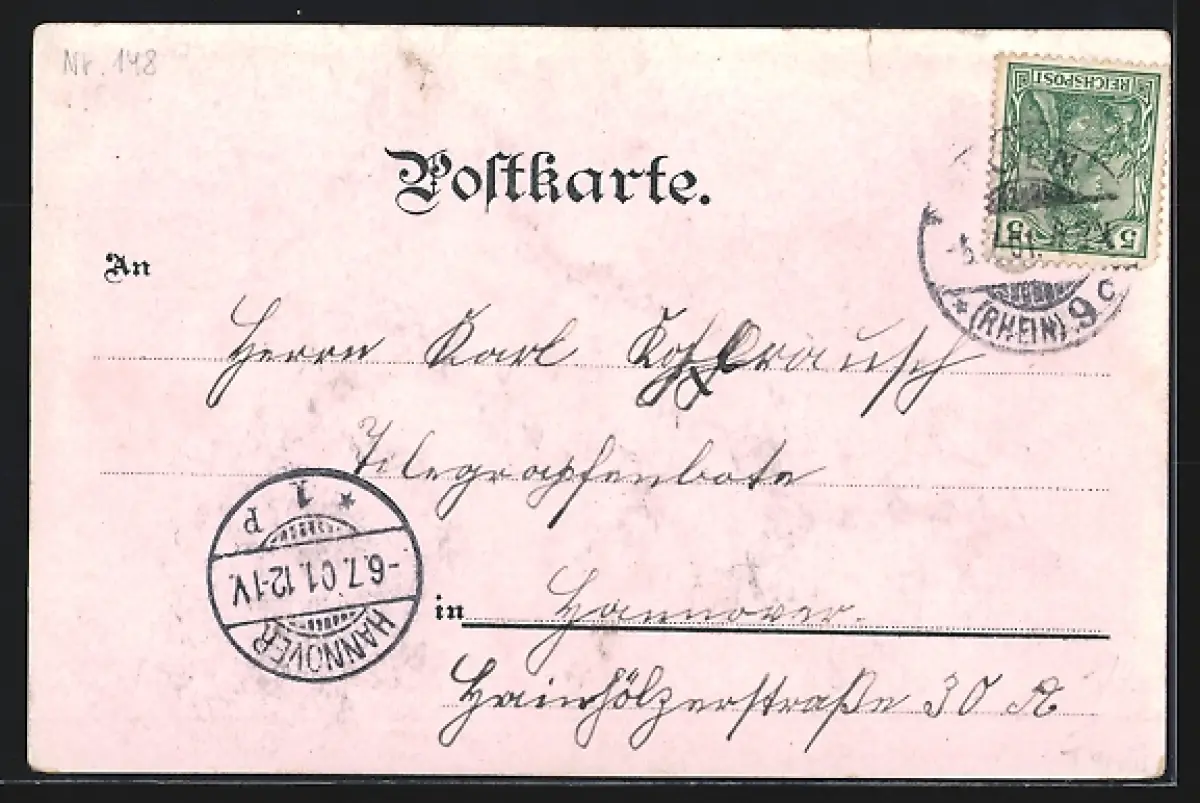 Nr. 148
REICHSPOST
5 5
Postkarte.
(RHEIN) 9 c
An
Herrn Karl Kohlrausch
Telegrafenbote
1 p
-6.7.01.12-1V.
HANNOVER
in Hannover.
Hainhölzerstraße 30 A